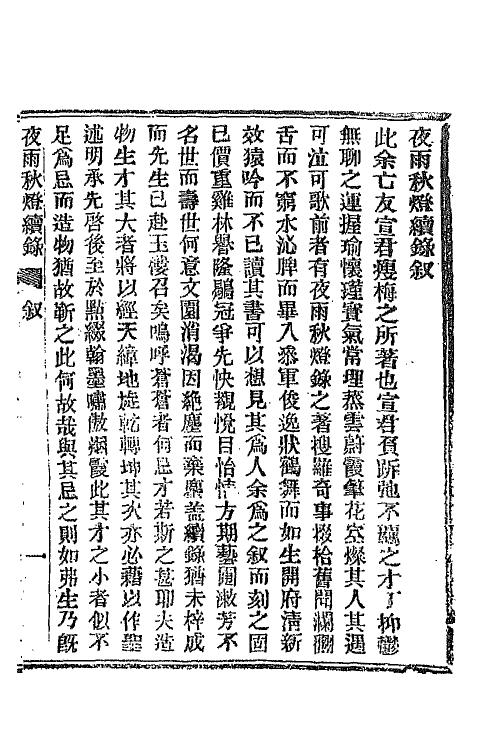 夜雨秋燈續錄叙
此余亡友宣君瘦梅之所著也宣君負跅弛不羈之才丁抑鬱
無聊之運握瑜懷瑾寶氣常埋蒸雲蔚霞筆花空燦其人其遇
可泣可歌前者有夜雨秋燈錄之著搜羅奇事掇拾舊聞瀾翻
舌而不窮水沁脾而畢入叅軍俊逸狀鶴舞而如生開府淸新
效猿吟而不已讀其書可以想見其爲人余爲之叙而刻之固
已價重雞林譽隆鶡冠爭先快覩悅目怡情方期藝圃漱芳不
名世而壽世何意文園消渴因絶塵而棄塵葢續錄猶未梓成
而先生已赴玉樓召矣嗚呼蒼蒼者何忌才若斯之甚耶夫造
物生才其大者將以經天緯地旋乾轉坤其次亦必藉以作聖
述明承先啓後至於點綴翰墨嘯傲烟霞此其才之小者似不
足爲忌而造物猶故靳之此何故哉與其忌之則如弗生乃旣
夜雨秋燈續錄 叙 一